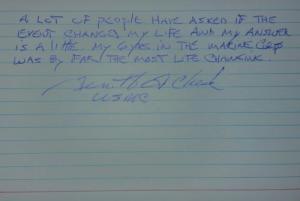 A LOT OF PEOPLE HAVE ASKED IF THE
EVENT CHANGED MY LIFE AND MY ANSWER
IS A LITTLE. MY 4 YRS IN THE MARINE CORPS
WAS BY FAR THE MOST LIFE CHANGING.
USMC